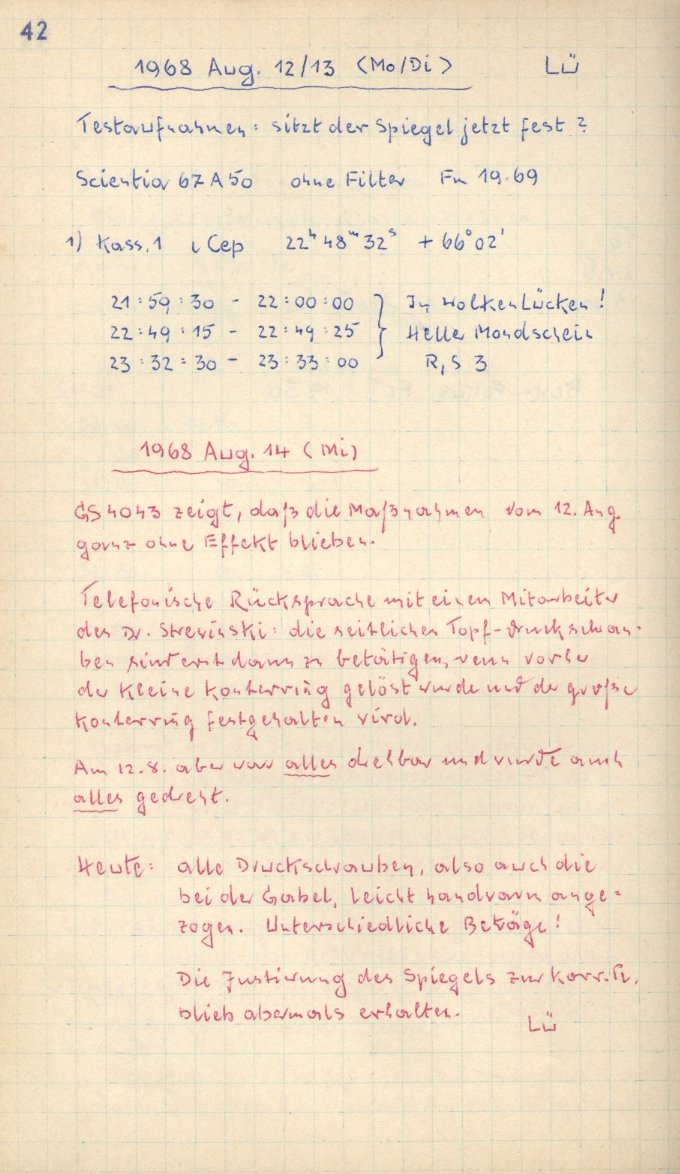 42
1968 Aug. 12/13 (Mo/Di) LÜ
Testaufnahmen: sitzt der Spiegel jetzt fest?
Scientia 67 A 50 ohne Filter Fn 19.69
1) Kass. 1 ι Cep 22ʰ 48ᵐ 32ˢ + 66° 02'
21:59:30 - 22:00:00 } In Wolkenlücken!
22:49:15 - 22:49:25 } Heller Mondschein
23:32:30 - 23:33:00 } R, S 3
1968 Aug. 14 (Mi)
GS 4043 zeigt, daß die Maßnahmen vom 12. Aug.
ganz ohne Effekt blieben.
Telefonische Rücksprache mit einem Mitarbeiter
des Dr. Strewinski: die seitlichen Topf-Druckschrau-
ben sind erst dann zu betätigen, wenn vorher
der kleine Konterring gelöst wurde und der große
Konterring festgehalten wird.
Am 12.8. aber war alles drehbar und wurde auch
alles gedreht.
Heute: alle Druckschrauben, also auch die
bei der Gabel, leicht handwarm ange-
zogen. Unterschiedliche Beträge!
Die Justierung des Spiegels zur Korr.
blieb abermals erhalten.
LÜ